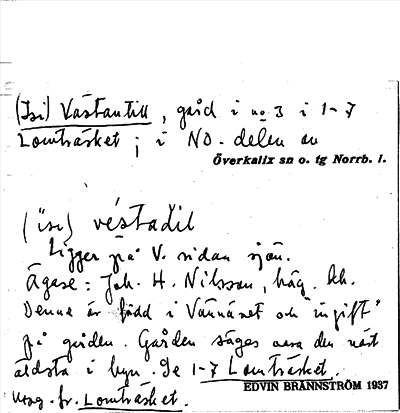 (Isi) Västantill, gård i no 3 i 1-7
Lomträsket; i NO-delen av
Överkalix sn o. tg Norrb. l.
(isi) véstadil
Ligger på V. sidan sjön.
Ägare: Joh. H. Nilsson, häg. kh.
Denne är född i Vännäset och "ingift"
på gården. Gården säges vara den näst
äldsta i byn. Se 1-7 Lomträsket.
EDVIN BRÄNNSTRÖM 1937
Uag. fr. Lomträsket.